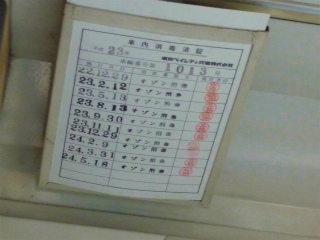 車内消毒済証
平成 23年
車両番号 1013 号
22.12.29 オゾン消毒
23.2.12 オゾン消毒
23.5.13 オゾン消毒
23.8.13 オゾン消毒
23.9.30 オゾン消毒
23.11.11 オゾン消毒
23.12.29 オゾン消毒
24.2.9 オゾン消毒
24.3.31 オゾン消毒
24.5.18 オゾン消毒